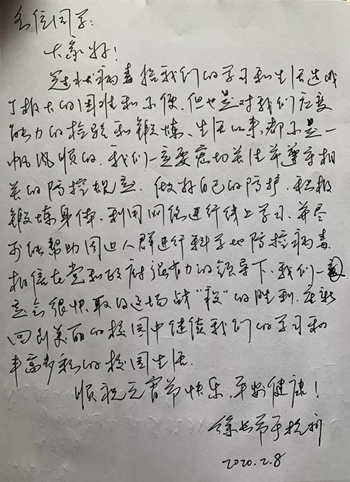 各位同学:
大家好!
冠状病毒给我们的学习和生活造成
了极大的困难和不便,但也是对我们应变
能力的检验和锻炼。生活从来都不是一
帆风顺的,我们一定要密切关注并遵守相
关的防控规定,做好自己的防护,积极
锻炼身体,利用网络进行线上学习,并尽
力帮助周边人群进行科学地防控病毒。
相信在党和政府强有力的领导下,我们一
定会很快取得这场战“疫”的胜利,重新
回到美丽的校园中继续我们的学习和
丰富多彩的校园生活。
顺祝元宵节快乐,平安健康!
于杭州
2020.2.8